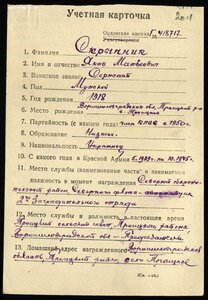 Учетная карточка
Орденская книжка
Удостоверения
№ 418717
1. Фамилия Скрыпник
2. Имя и отчество Яков Матвеевич
3. Воинское звание Сержант
4. Пол Мужской
5. Год рождения 1918
6. Место рождения Ворошиловградская обл, Троицкий р-н
с. Троицкое
7. Партийность (с какого года) член КПСС с 1950 г.
8. Образование Низшее
9. Национальность Украинец
10. С какого года в Красной Армии с 1939 по X. 1945 г.
11. Место службы (наименование части) и занимаемая
должность в момент награждения Северной оборони-
тельный район Северного флота
2й
отряда
12. Место службы и должность в настоящее время
Троицкий сельский совет, Троицкого района
Ворошиловградской обл
13. Домашний адрес награжденного Ворошиловградская
область, Троицкий район, село Троицкое